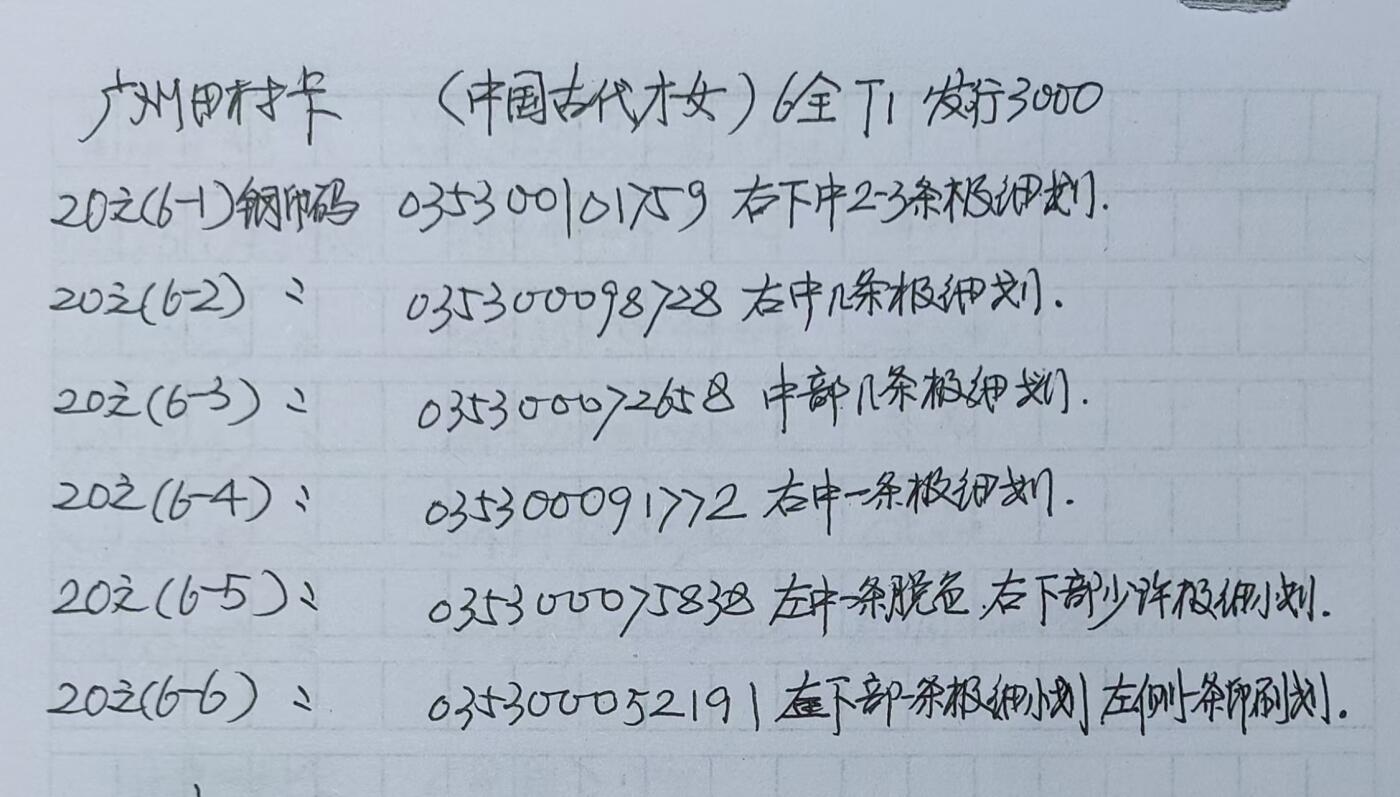 广州田村卡 (中国古代才女) 6全 T1 发行3000
20元(6-1)钢印码 035300101759 右下中2-3条极细划.
20元(6-2) 〃 035300098728 右中几条极细划.
20元(6-3) 〃 035300072658 中部几条极细划.
20元(6-4) 〃 035300091772 右中一条极细划.
20元(6-5) 〃 035300075838 左中一条脱色.右下部少许极细小划.
20元(6-6) 〃 035300052191 下部一条极细小划 左侧一条印刷划.